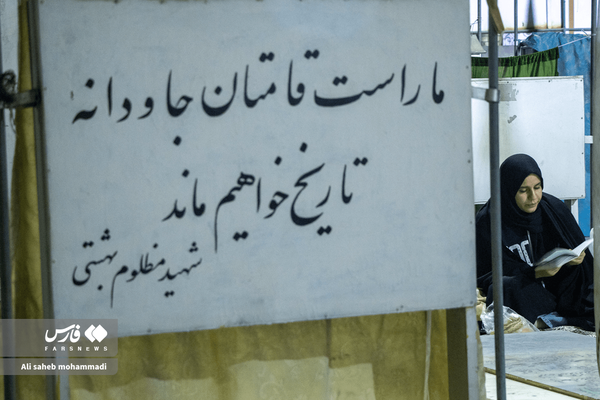 ما راست قامتان جاودانهٔ
تاریخ خواهیم ماند
شهید مظلوم بهشتی
فارس
FARSNEWS
Ali saheb mohammadi